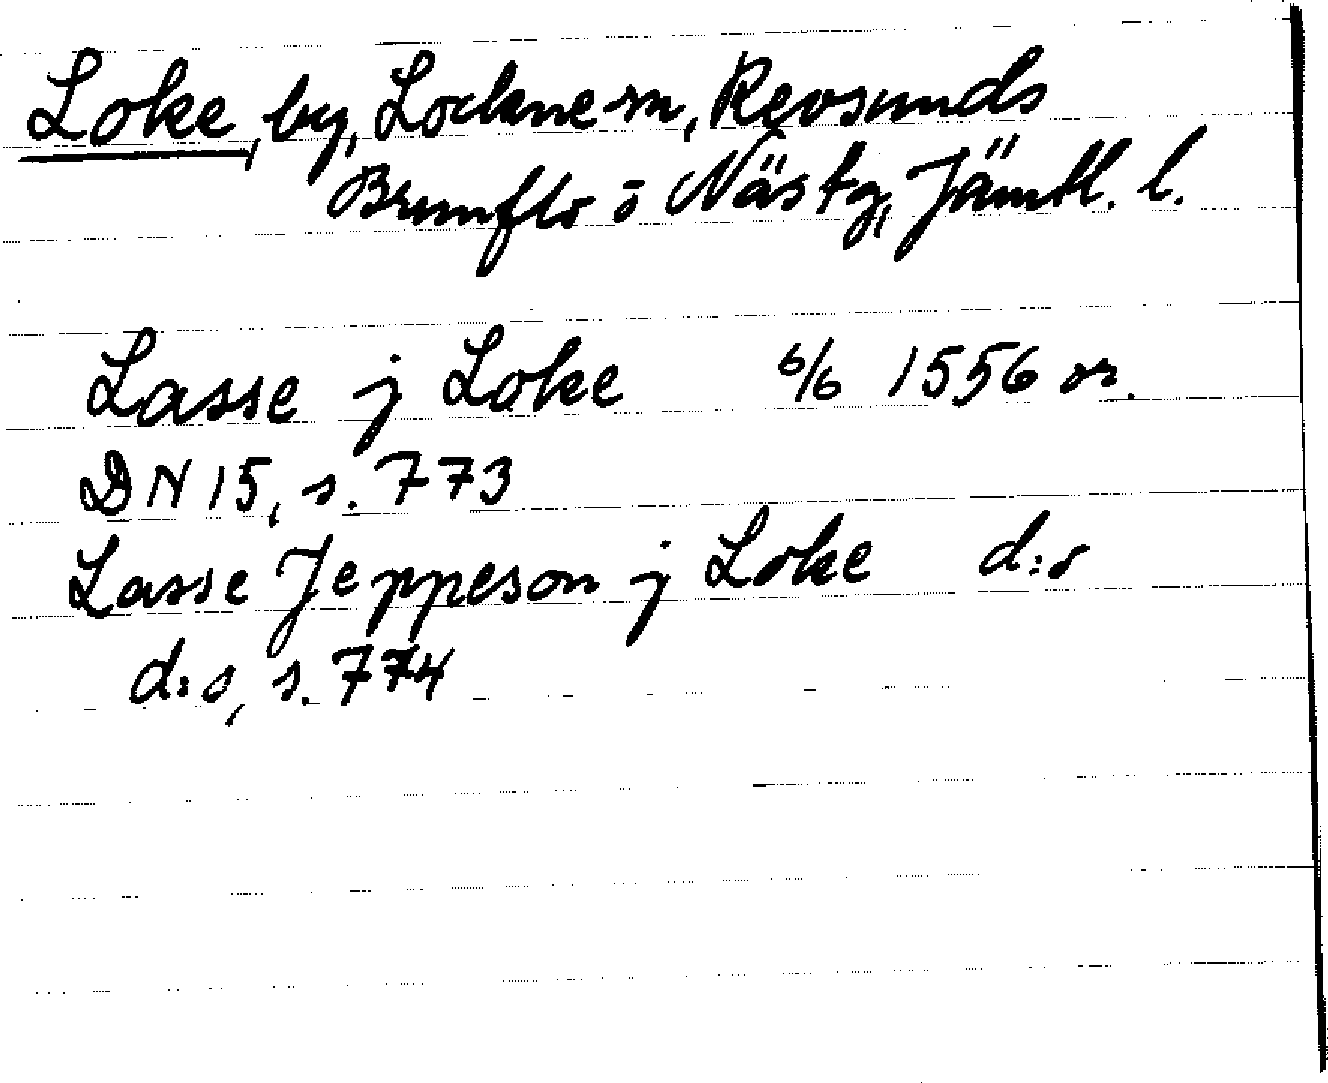 Loke, by, Lockne sn, Revsunds
Brunflo o Näs tg, Jämtl. l.
Lasse j Loke 6/6 1556 or.
DN 15, s. 773
Lasse Jeppeson j Loke d:o
d:o, s. 774